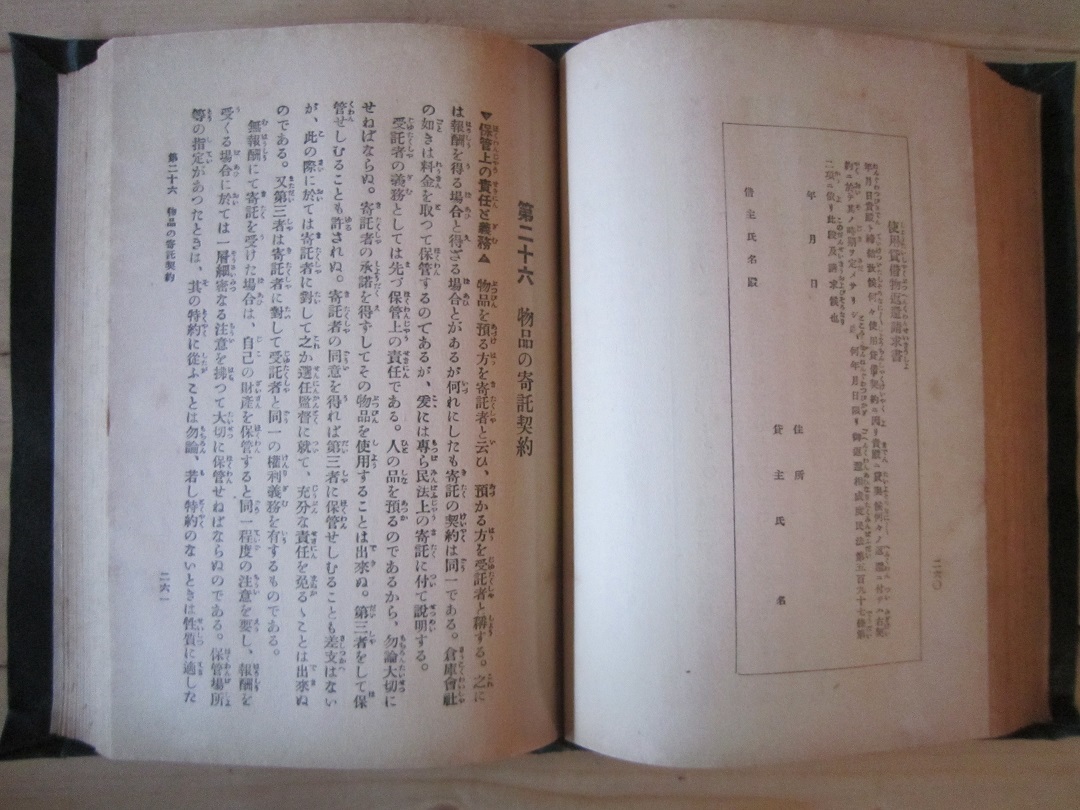 使用貸借物返還請求書
年月日貴殿ト締結致候何々使用貸借契約ニ因リ貴殿ニ貸渡候何々ノ返還ニ付テハ右契
約ニ於テ其ノ時期ヲ定メ
何年月日限リ御返還相成度民法第五百九十七條第
二項ニ依リ此段及請求候也
年月日
住所
貸主氏名
借主氏名殿
二六〇
第二十六 物品の寄託契約
▼保管上の責任と義務▲ 物品を預る方を寄託者と云ひ、預かる方を受託者と稱する。之に
は報酬を得る場合と得ざる場合とがあるが何れにしたも寄託の契約は同一である。倉庫會社
の如きは料金を取つて保管するのであるが、爰には專ら民法上の寄託に付て説明する。
受託者の義務としては先づ保管上の責任である。人の品を預るのであるから、勿論大切に
せねばならぬ。寄託者の承諾を得すしてその物品を使用することは出來ぬ。第三者をして保
管せしむることも許されぬ。寄託者の同意を得れば第三者に保管せしむることも差支はない
が、此の際に於ては寄託者に對して之か選任監督に就て、充分な責任を免るゝことは出來ぬ
のである。又第三者は寄託者に對して受託者と同一の權利義務を有するものである。
無報酬にて寄託を受けた場合は、自己の財產を保管すると同一程度の注意を要し、報酬を
受くる場合に於ては一層細密なる注意を拂つて大切に保管せねばならぬのである。保管場所
等の指定があつたときは、其の特約に從ふことは勿論、若し特約のないときは性質に適した
第二十六 物品の寄託契約
二六一